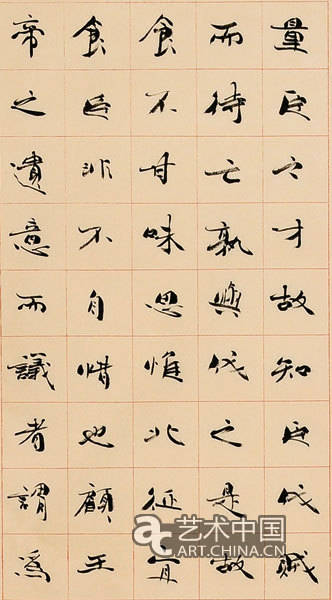 量臣之才故知臣伐賊
而待亡孰與伐之是故
食不甘味思惟北征宜
食臣非不自惜也顧王
帝之遺意而議者謂為
ac 艺术中国
ART.CHINA.CN